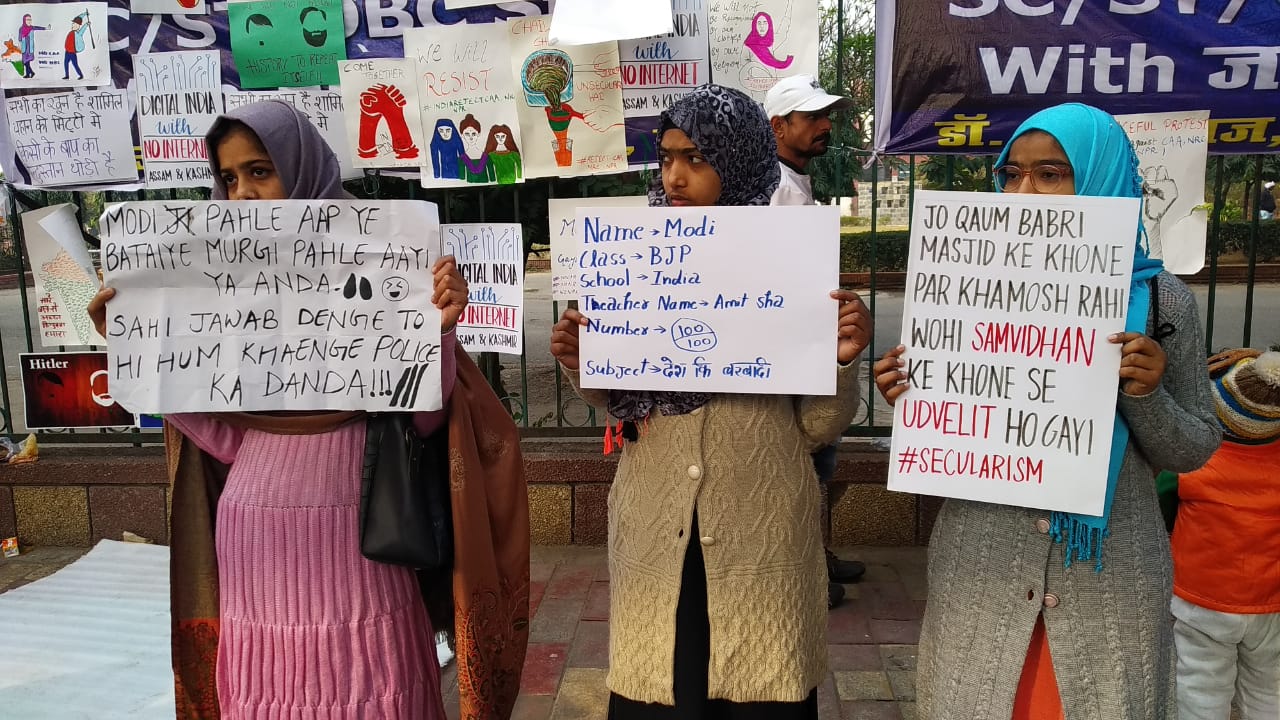 SC/ST/OBC
HISTORY TO REPEAT
ITSELF!
DIGITAL INDIA
with
NO INTERNET
सभी का खून है शामिल
यहाँ की मिट्टी में
किसी के बाप का
हिन्दुस्तान थोड़ी है
COME
TOGETHER
WE WILL
RESIST
INDIA
with
NO INTERNET
ASSAM & KASHMIR
SC/ST/
With
डॉ.
PEACEFUL PROTEST
MODI JI PAHLE AAP YE
BATAIYE MURGI PAHLE AAYI
YA ANDA.
SAHI JAWAB DENGE TO
HI HUM KHAENGE POLICE
KA DANDA!!!
Name → Modi
Class → BJP
School → India
Theacher Name → Amit sha
Number → 100/100
Subject → देश कि बरबादी
JO QAUM BABRI
MASJID KE KHONE
PAR KHAMOSH RAHI
WOHI SAMVIDHAN
KE KHONE SE
UDVELIT HO GAYI
#SECULARISM
DIGITAL INDIA
with
NO INTERNET
ASSAM & KASHMIR
Hitler